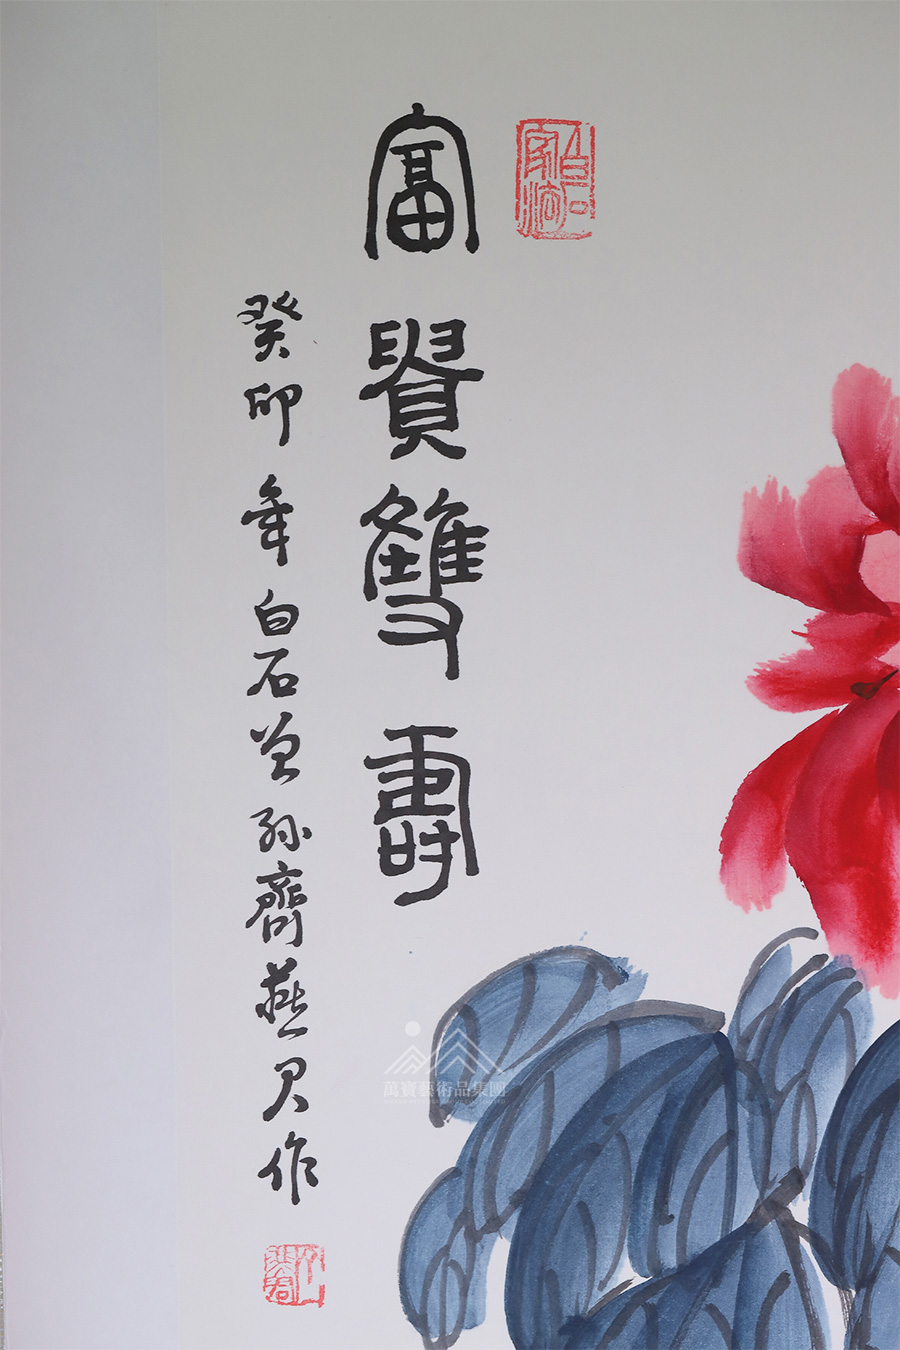 富貴雙壽
癸卯年白石曾孫齊燕君作
萬寶藝術品集團